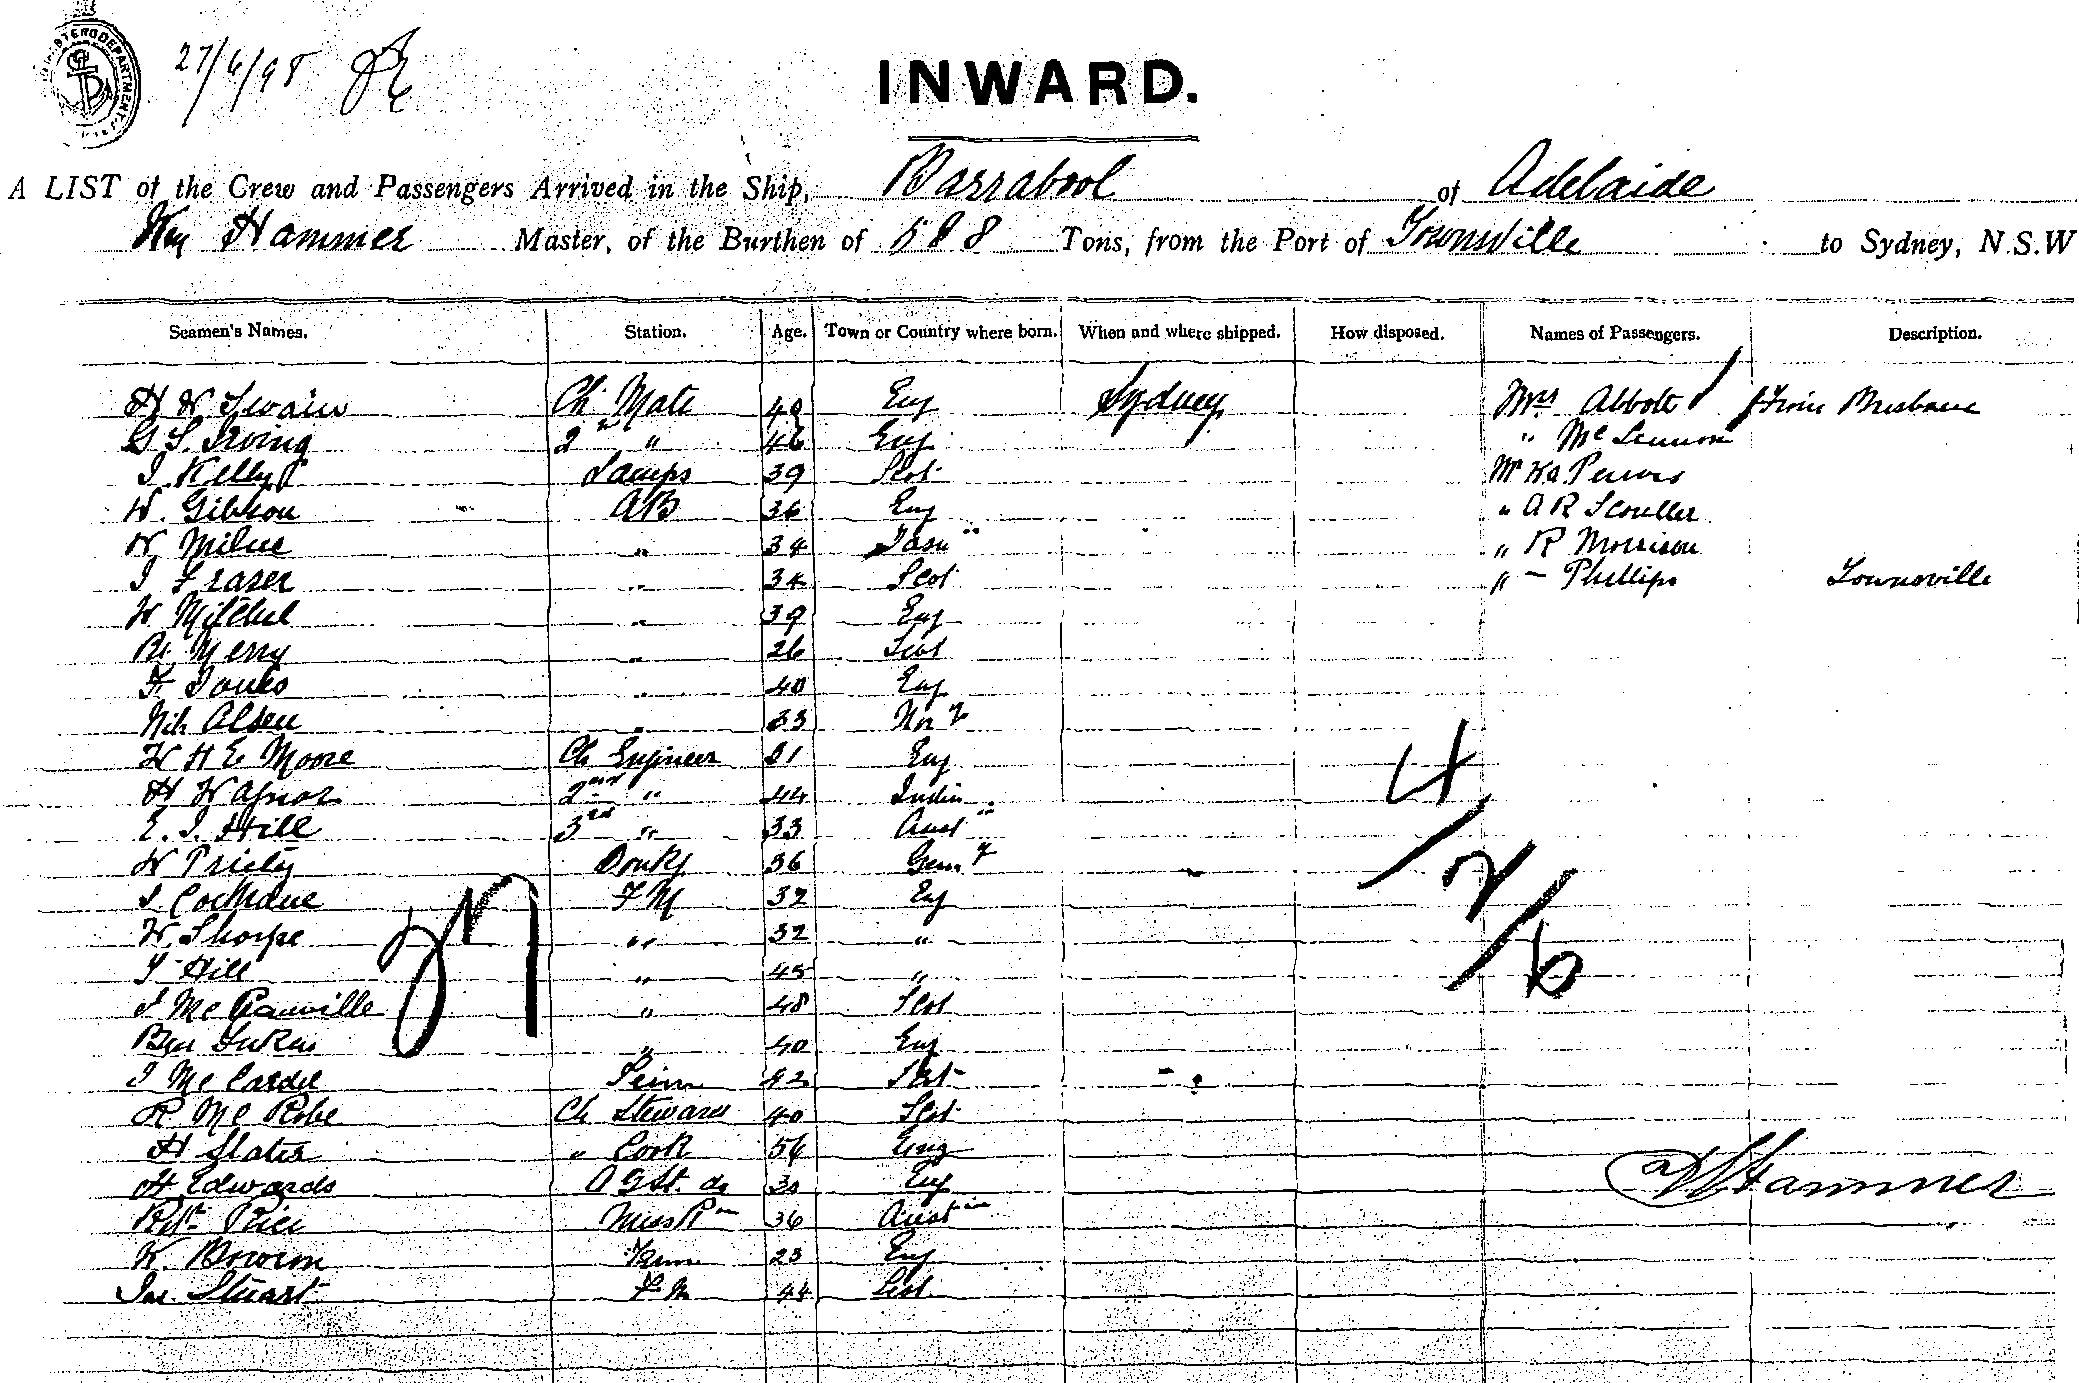 27/6/98
INWARD.
A LIST of the Crew and Passengers Arrived in the Ship, Barrabool of Adelaide
Wm Hammer Master, of the Burthen of 588 Tons, from the Port of Townsville to Sydney, N.S.W
Seamen's Names. Station. Age. Town or Country where born. When and where shipped. How disposed. Names of Passengers. Description.
H W Swain Ch Mate Eng Sydney Mrs Abbott From Brisbane
G S. Irving 2nd " 46 Eng " Mc Lennon
J Kelly Lamps 39 Scot Mr
W. Gibson AB 36 Eng " A R Scouller
W Milne " 34 Tasn " R Morrison
J Fraser " 34 Scot " - Phillips Townsville
W Mitchel " 39 Eng
Rt Merry " 26 Scot
F. Jones " 40 Eng
Nils Olsen " 33 Nory
W H E Moore Ch Engineer Eng
H Wagnor 2nd " 44 India
E. J. Hill 3rd " 33 Aust
W Donky 36 Gery
J Cochrane FM 32 Eng
W Thorpe " 32 "
T Hill " 45 "
J Mc " 48 Scot
Ben " 40 Eng
J Mc Cardel Trim 42 Scot
R Mc Robe Ch Steward 40 Scot
H Slater " Cook 56 Eng
H Edwards 30 Eng
Robt Price MessRm 36 Aust
W. Bowron Trim 23 Eng
Jas. Stuart FM 44 Scot
27
4/2/6
W Hammer